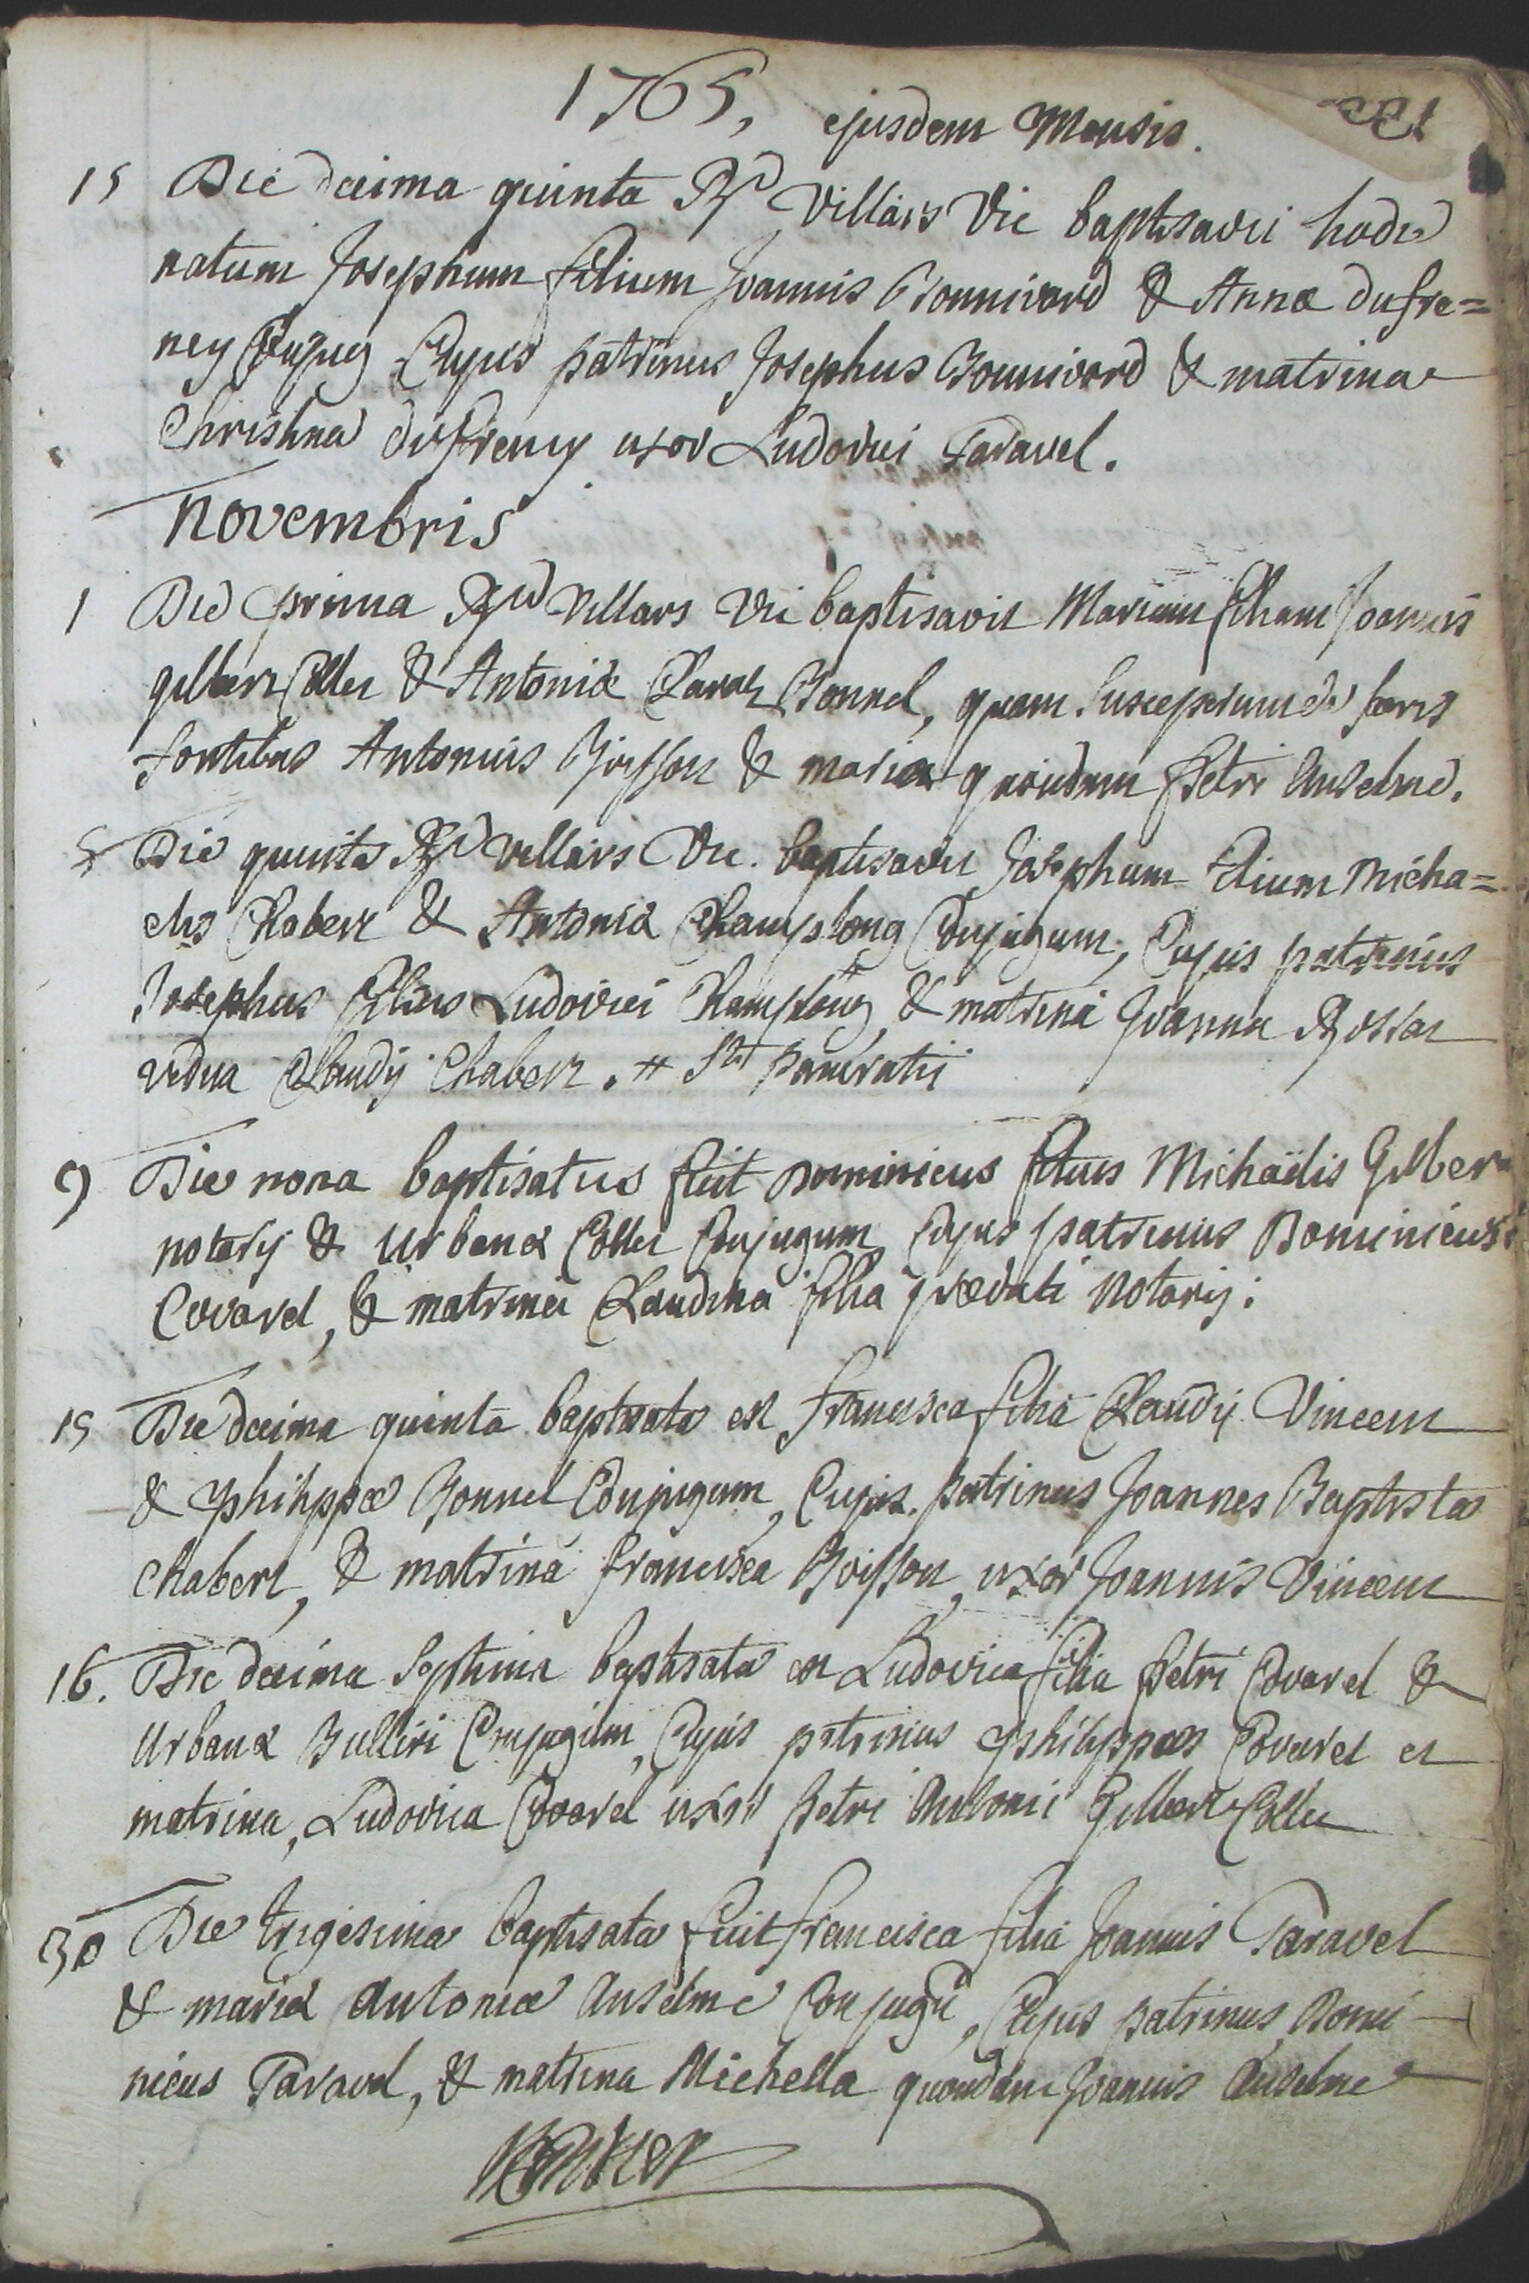 1765, ejusdem Mensis.
15 Die decima quinta Rd Villars Vic baptisavit hodie
natum Josephum filium Joannis Bonnivard & Annæ dufre=
ney Conjug Cujus patrinus Josephus Bonnivard & matrina
Christina dufreney uxor Ludovici Taravel.
Novembris
1 Die prima Rd Villars Vic baptisavit Mariam filiam Joannis
gilbert Collet & Antoniæ Claraz Bonnel, quam Susceperunt de sacris
fontibus Antonius Boisson & maria quondam Petri Anselme.
5 Die quinta Rd Villars Vic. baptisavit Josephum filium Micha=
elis Chabert & Antoniæ Champlong Conjugum, Cujus patrinus
Josephus filius Ludovici Champlong & matrina Joanna
vidua Claudij Chabert. # Sti pancratii
9 Die nona baptisatus fuit Dominicus filius Michaëlis Gilbert
notarij & Urbanæ Collet Conjugum Cujus patrinus Dominicus
Covarel, & matrina Claudina filia prædicti Notarij.
15 Die decima quinta baptisata est francisca filia Claudij Vincent
& philippæ Bonnel Conjugum, Cujus patrinus Joannes Baptista
Chabert, & matrina francisca Boisson, uxor Joannis Vincent
16. Die decima Septima baptisata est Ludovica filia Petri Covarel &
Urbanæ Bulliri Conjugum, Cujus patrinus philippus Covarel et
matrina, Ludovica Covarel uxor Petri Antonii Gilbert Collet
30 Die trigesima baptisata fuit francisca filia Joannis Taravel
& mariæ Antoniæ Anselme Conjugū, Cujus patrinus Domi
nicus Taravel, & matrina Michella quondam Joannis Anselme